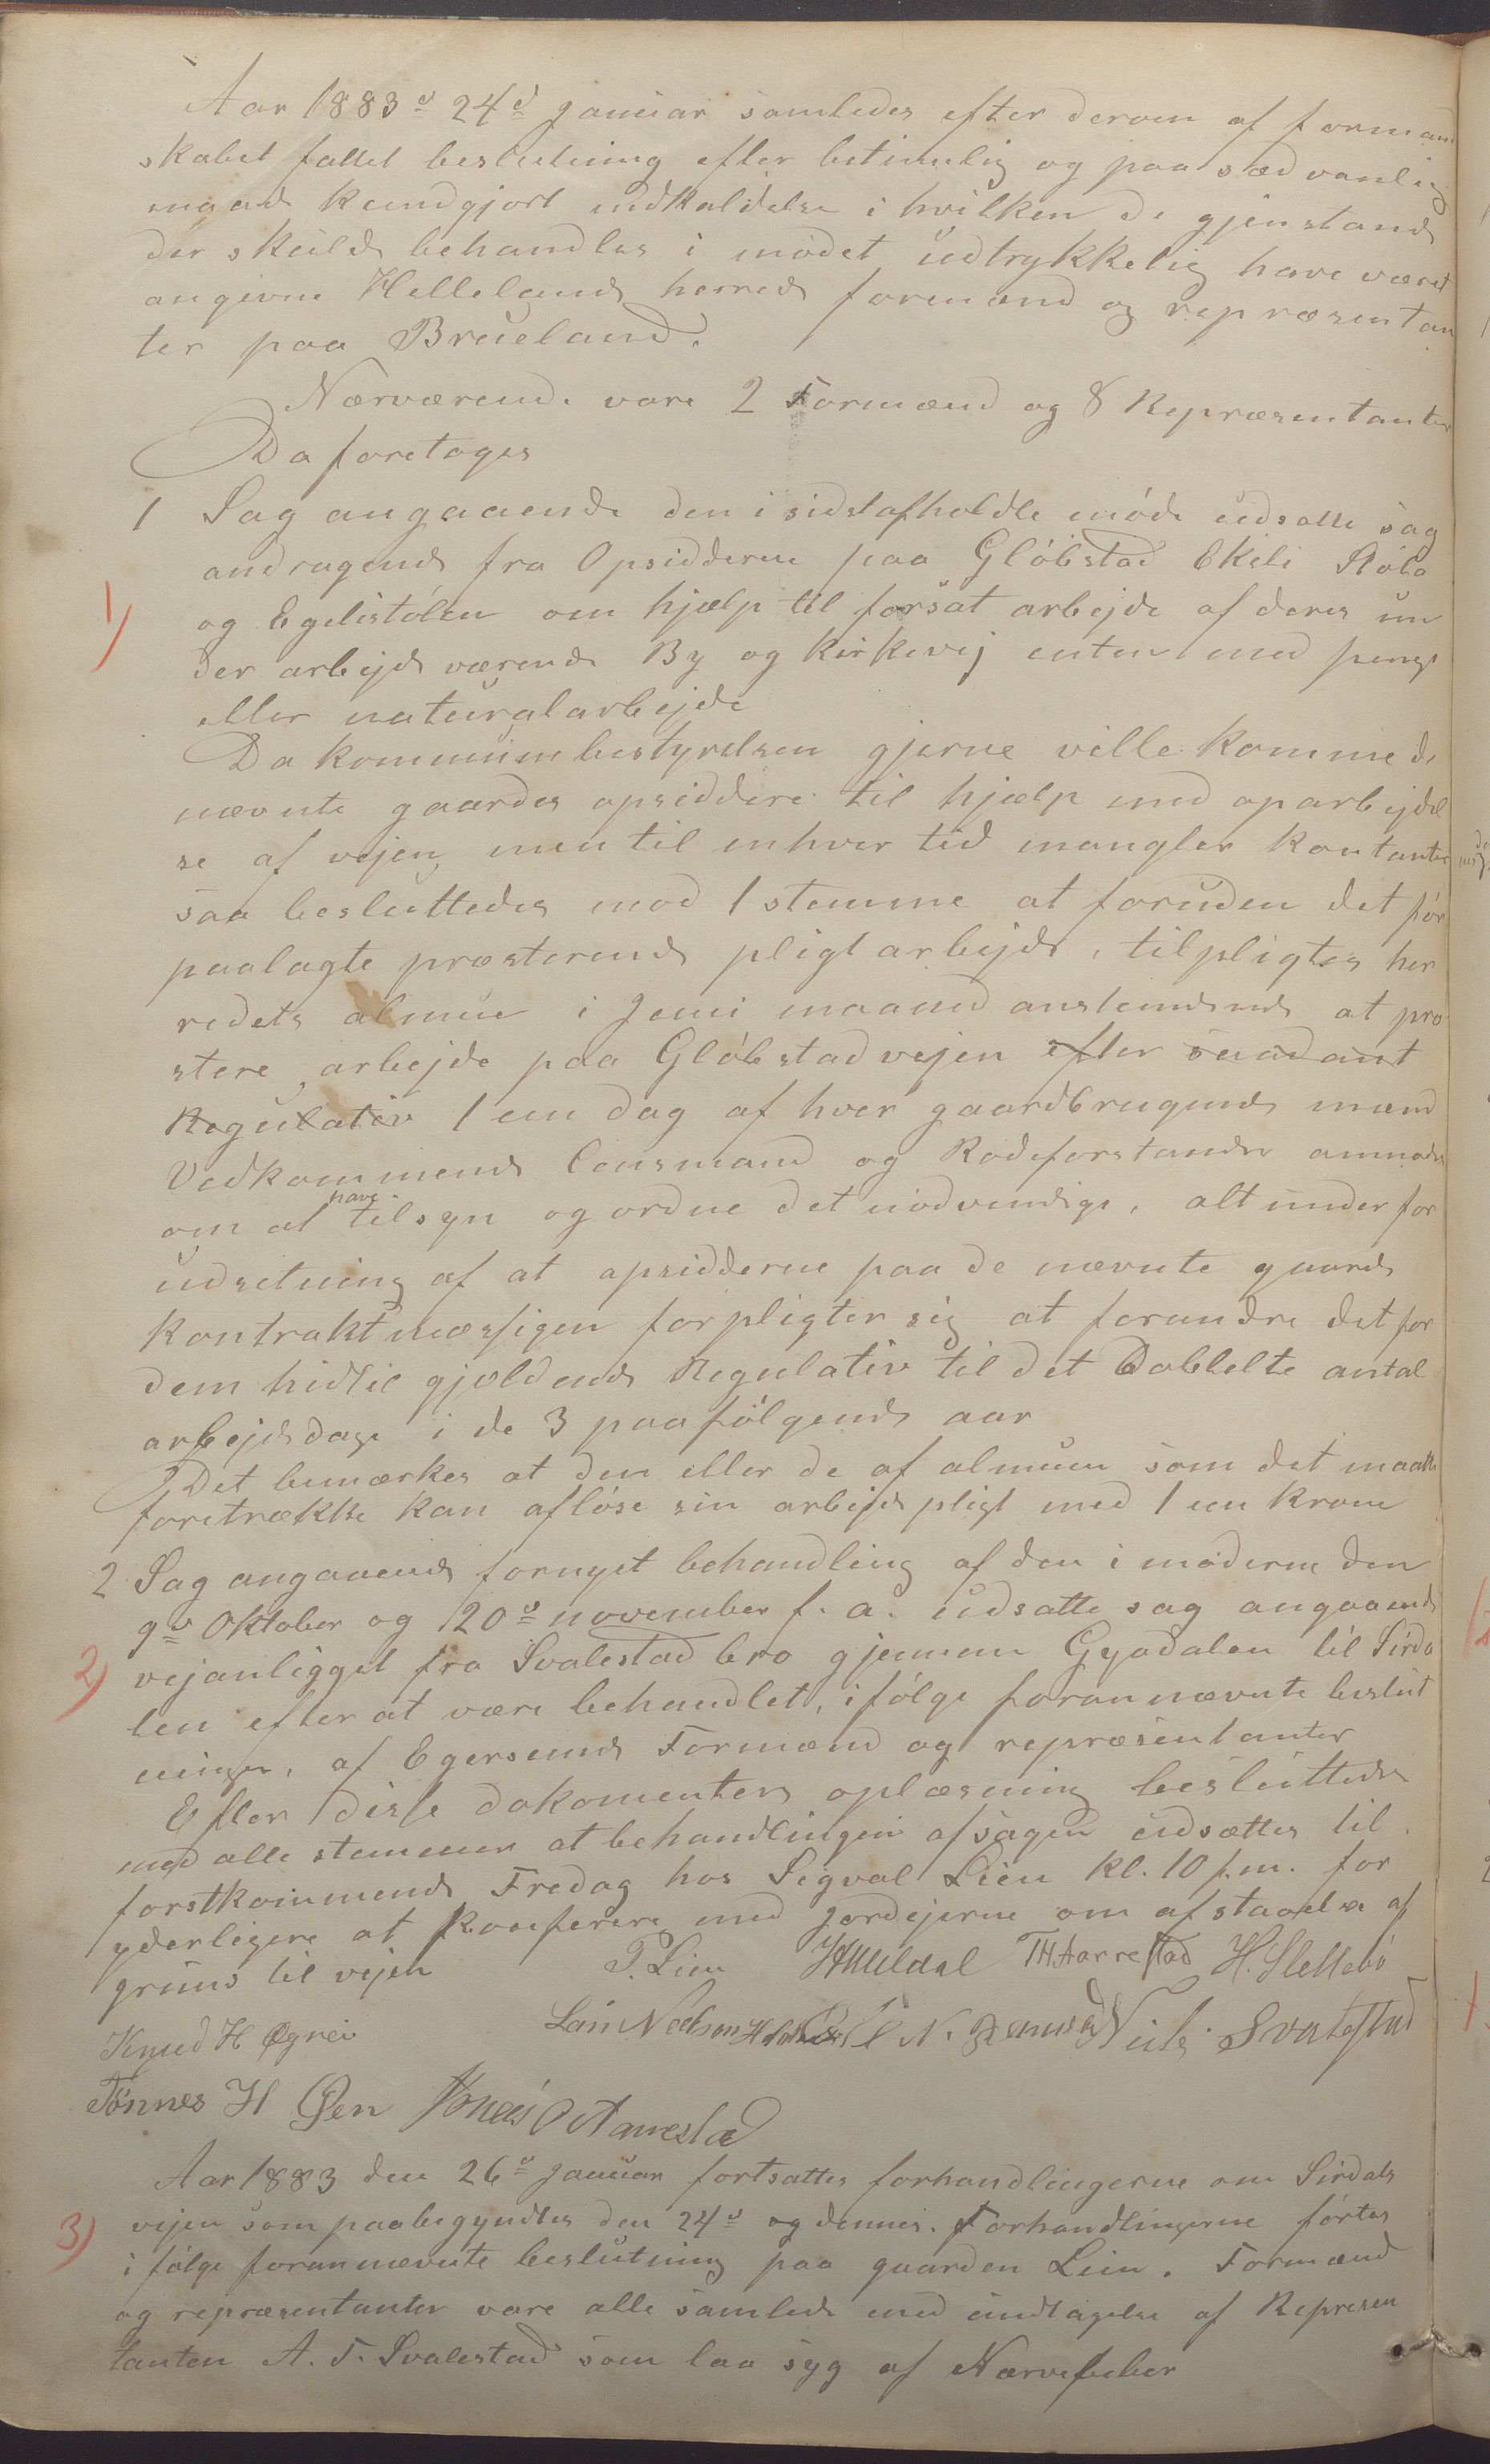 Aar 1883 d 24d Januar samledes efter derom af formand
skabet fattet beslutning efter betimelig og paa sædvanlig
maade kundgjort indkaldelse i hvilken de gjenstande
der skulde behandles i mødet udtrykkelig have været
angivne Hellelands herreds formænd og repræsentan
ter paa Brueland.
Nærværende vare 2 Formænd og 8 Repræsentanter
Da foretoges
1 Sag angaaende den i sidstafholdte møde udsatte sag
andragende fra Opsidderne paa Gløbstad Ekeli Støle
1) og Egelistølen om hjælp til forsat arbejde af deres un
der arbejde værende By og Kirkevej enten med penge
eller naturalarbejde
Da kommunebestyrelsen gjerne ville komme de
nævnte gaardes opsiddere til hjælp med oparbejdel
se af vejen, men til enhver tid mangler kontanter
saa besluttedes mod 1 stemme at foruden det før
paalagte præsterende pligtarbejde, tilpligtes her
redets almue i Juni maaned anstundende at præ
stere arbejde paa Gløbstadvejen efter saadant
Regulativ 1 en dag af hver gaardbrugende mand
Vedkommende Lensmand og Rodeforstandre anmodes
om at have tilsyn og ordne det nødvendige, alt under for
udsetning af at opsidderne paa de nævnte gaarde
kontraktmæssigen forpligter sig at forandre det for
dem hidtil gjældende Regulativ til det Dobbelte antal
arbejdsdage i de 3 paafølgende aar
Det bemærkes at den eller de af almuen som det maatte
foretrække kan afløse sin arbejdspligt med 1 en krone
2 Sag angaaende fornyet behandling af den i møderne den
9d Oktober og 20d november f. a. udsatte sag angaaende
2) vejanlegget fra Svalestad bro gjennem Gyadalen til Sirda
len efter at være behandlet, ifølge forannævnte beslut
ninger, af Egersunds Formænd og repræsentanter
Efter disse dokumenters oplæsning besluttedes
med alle stemmer at behandlingen af sagen udsættes til
førstkommende Fredag hos Sigval Lien Kl. 10 f.m. for
yderligere at konferere med jordejerne om afstaaelse af
grund til vejen
P. Lien THAarrestad H. Slettebø
Knud H Øgrei
Tønnes H Øen
Aar 1883 den 26d Januar fortsattes forhandlingerne om Sirdals
vejen som paabegyndtes den 24d og dennes. Forhandlingerne førtes
3) ifølge forannævnte beslutning paa gaarden Lien. Formænd
og repræsentanter vare alle samlede med undtagelse af Represen
tanten A. T. Svalestad som laa syg af Nærvefeber